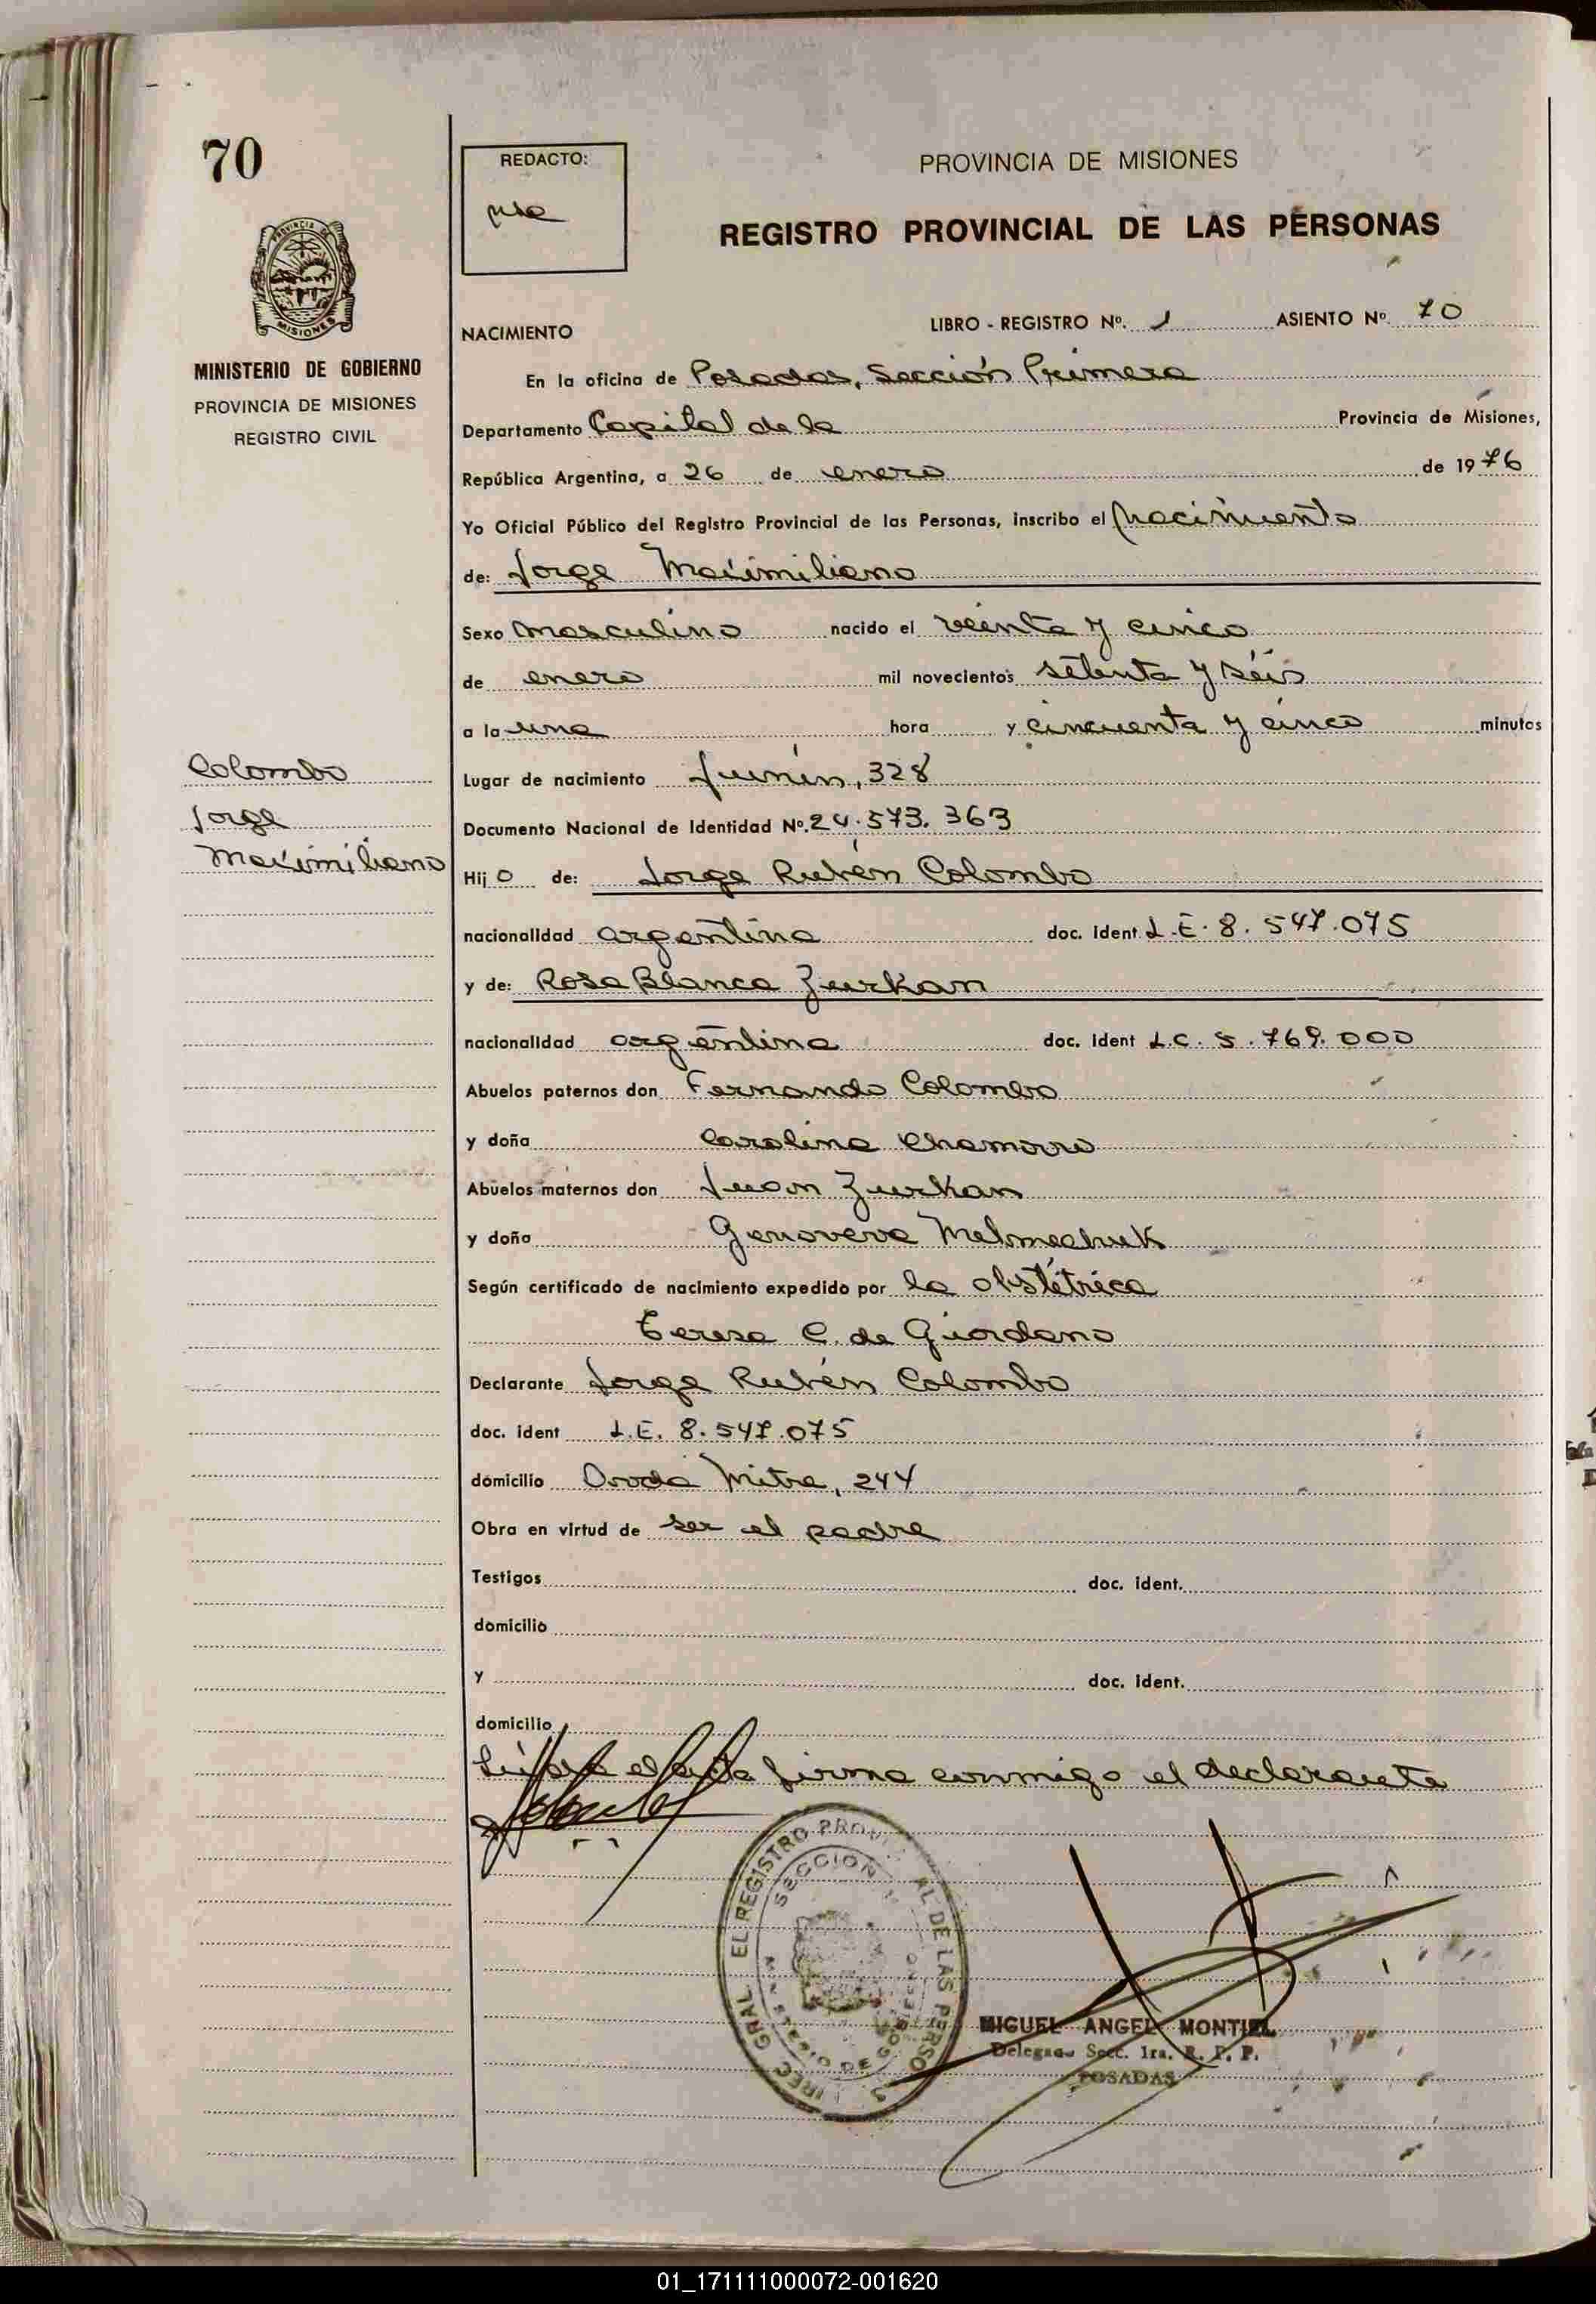 70
REDACTO:
PROVINCIA DE MISIONES
REGISTRO PROVINCIAL DE LAS PERSONAS
MISIONES
MINISTERIO DE GOBIERNO
PROVINCIA DE MISIONES
REGISTRO CIVIL
NACIMIENTO LIBRO - REGISTRO Nº. 1 ASIENTO Nº 70
En la oficina de Posadas, Sección Primera
Departamento Capital de la Provincia de Misiones,
República Argentina, a 26 de enero de 1976
Yo Oficial Público del Registro Provincial de las Personas, inscribo el nacimiento
de: Jorge Maximiliano
Sexo masculino nacido el veinte y cinco
de enero mil novecientos setenta y séis
a la una hora y cincuenta y cinco minutos
Colombo
Jorge
Maximiliano
Lugar de nacimiento Junín, 328
Documento Nacional de Identidad Nº. 24.573.363
Hij o de: Jorge Rubén Colombo
nacionalidad argentina doc. ident L.E. 8.547.075
y de: Rosa Blanca Zurkan
nacionalidad argentina doc. ident L.C. 5.769.000
Abuelos paternos don Fernando Colombo
y doña Carolina Chamorro
Abuelos maternos don Juan Zurkan
y doña Genoveva Melmechuk
Según certificado de nacimiento expedido por la obstétrica
Teresa C. de Giordano
Declarante Jorge Rubén Colombo
doc. ident L.E. 8.547.075
domicilio Mitre, 244
Obra en virtud de ser el padre
Testigos doc. ident.
domicilio
y doc. ident.
domicilio
el acta firma conmigo el declarante
MIGUEL ANGEL MONTIEL
Delegado Secc. 1ra. R. P. P.
POSADAS
01_171111000072-001620